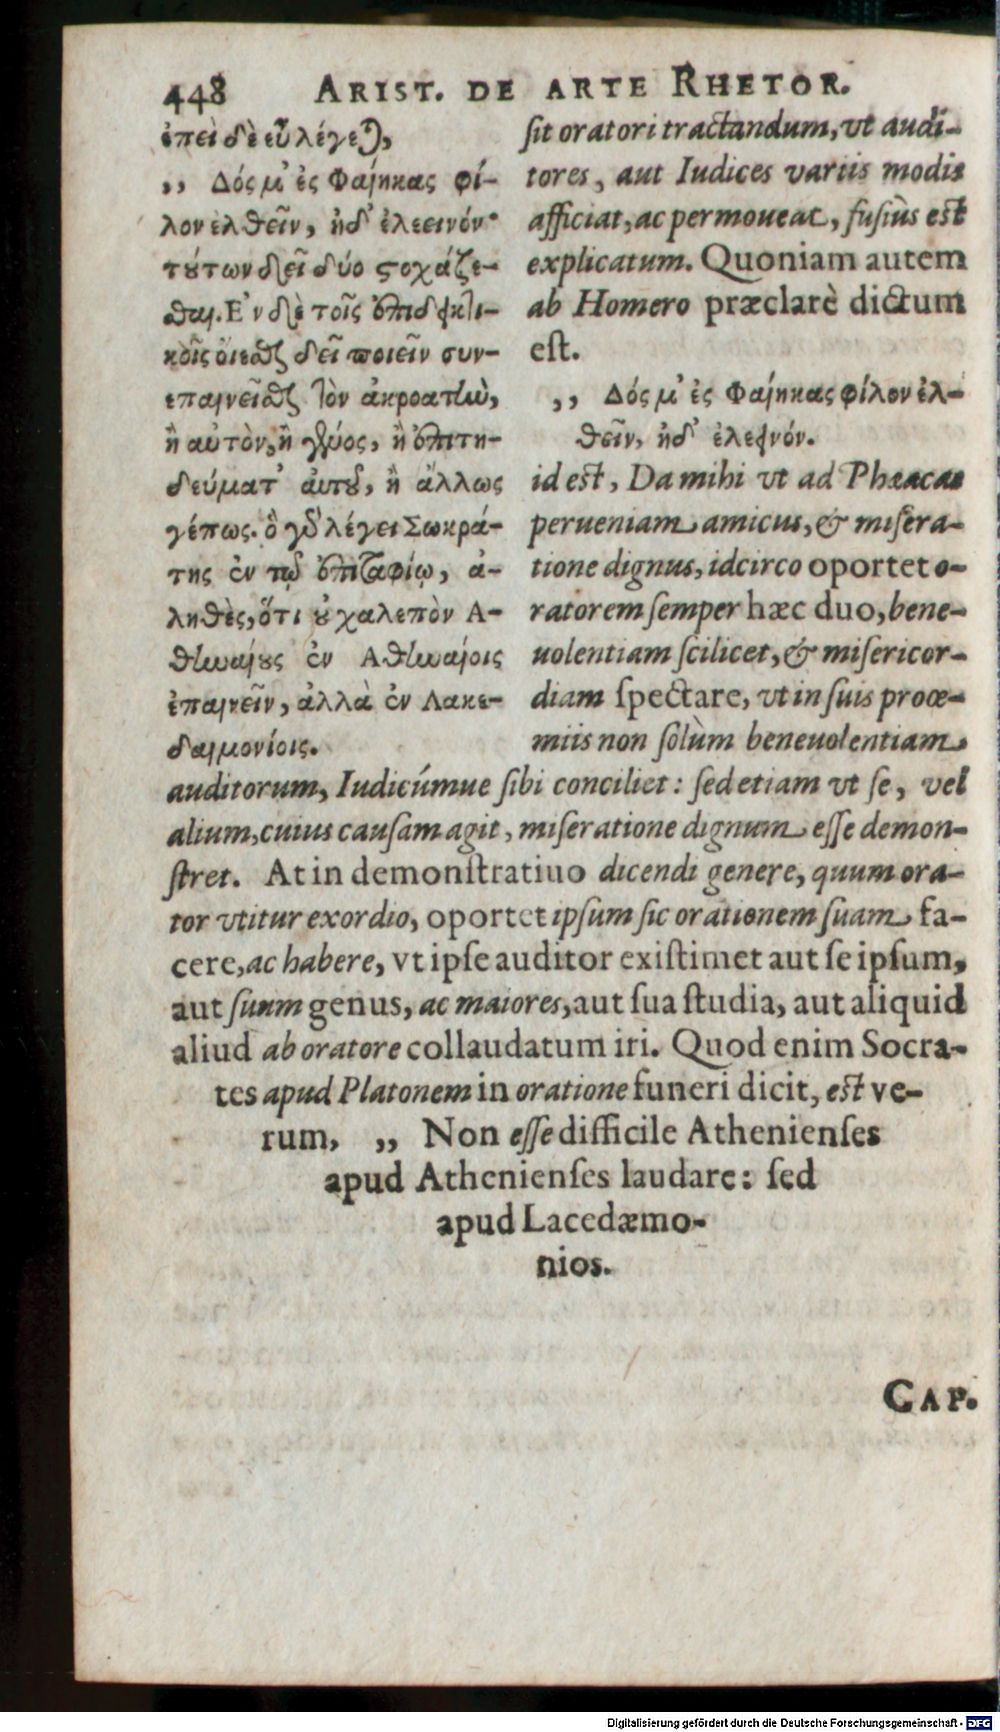 448 ARIST. DE ARTE RHETOR.
ἐπεὶ δὲ εὖ λέγεται,
,, Δός μ' ἐς Φαίηκας φί-
λον ἐλθεῖν, ἠδ' ἐλεεινόν·
τούτων δεῖ δύο στοχάζε-
σθαι. Ἐν δὲ τοῖς ἐπιδεικτι-
κοῖς οἴεσθαι δεῖ ποιεῖν συν-
επαινεῖσθαι τὸν ἀκροατὴν,
ἢ αὐτὸν, ἢ γένος, ἢ ἐπιτη-
δεύματ' αὐτοῦ, ἢ ἄλλως
γέπως. ὃ γὰρ λέγει Σωκρά-
της ἐν τῷ ἐπιταφίῳ, ἀ-
ληθὲς, ὅτι οὐ χαλεπὸν Ἀ-
θηναίους ἐν Ἀθηναίοις
ἐπαινεῖν, ἀλλὰ ἐν Λακε-
δαιμονίοις.
ſit oratori tractandum, vt audi-
tores, aut Iudices variis modis
afficiat, ac permoueat, fuſiùs est
explicatum. Quoniam autem
ab Homero præclarè dictum
eſt.
,, Δός μ' ἐς Φαίηκας φίλον ἐλ-
θεῖν, ἠδ' ἐλεεινόν.
id eſt, Da mihi vt ad Phæacas
perueniam amicus, & miſera-
tione dignus, idcirco oportet o-
ratorem ſemper hæc duo, bene-
uolentiam ſcilicet, & miſericor-
diam ſpectare, vt in ſuis proœ-
miis non ſolùm beneuolentiam
auditorum, Iudicúmue ſibi conciliet: ſed etiam vt ſe, vel
alium, cuius cauſam agit, miſeratione dignum eſſe demon-
ſtret. At in demonſtratiuo dicendi genere, quum ora-
tor vtitur exordio, oportet ipſum ſic orationem ſuam fa-
cere, ac habere, vt ipſe auditor exiſtimet aut ſe ipſum,
aut ſuum genus, ac maiores, aut ſua ſtudia, aut aliquid
aliud ab oratore collaudatum iri. Quod enim Socra-
tes apud Platonem in oratione funeri dicit, eſt ve-
rum, ,, Non eſſe difficile Athenienſes
apud Athenienſes laudare: ſed
apud Lacedæmo-
nios.
CAP.
Digitalisierung gefördert durch die Deutsche Forschungsgemeinschaft - DFG